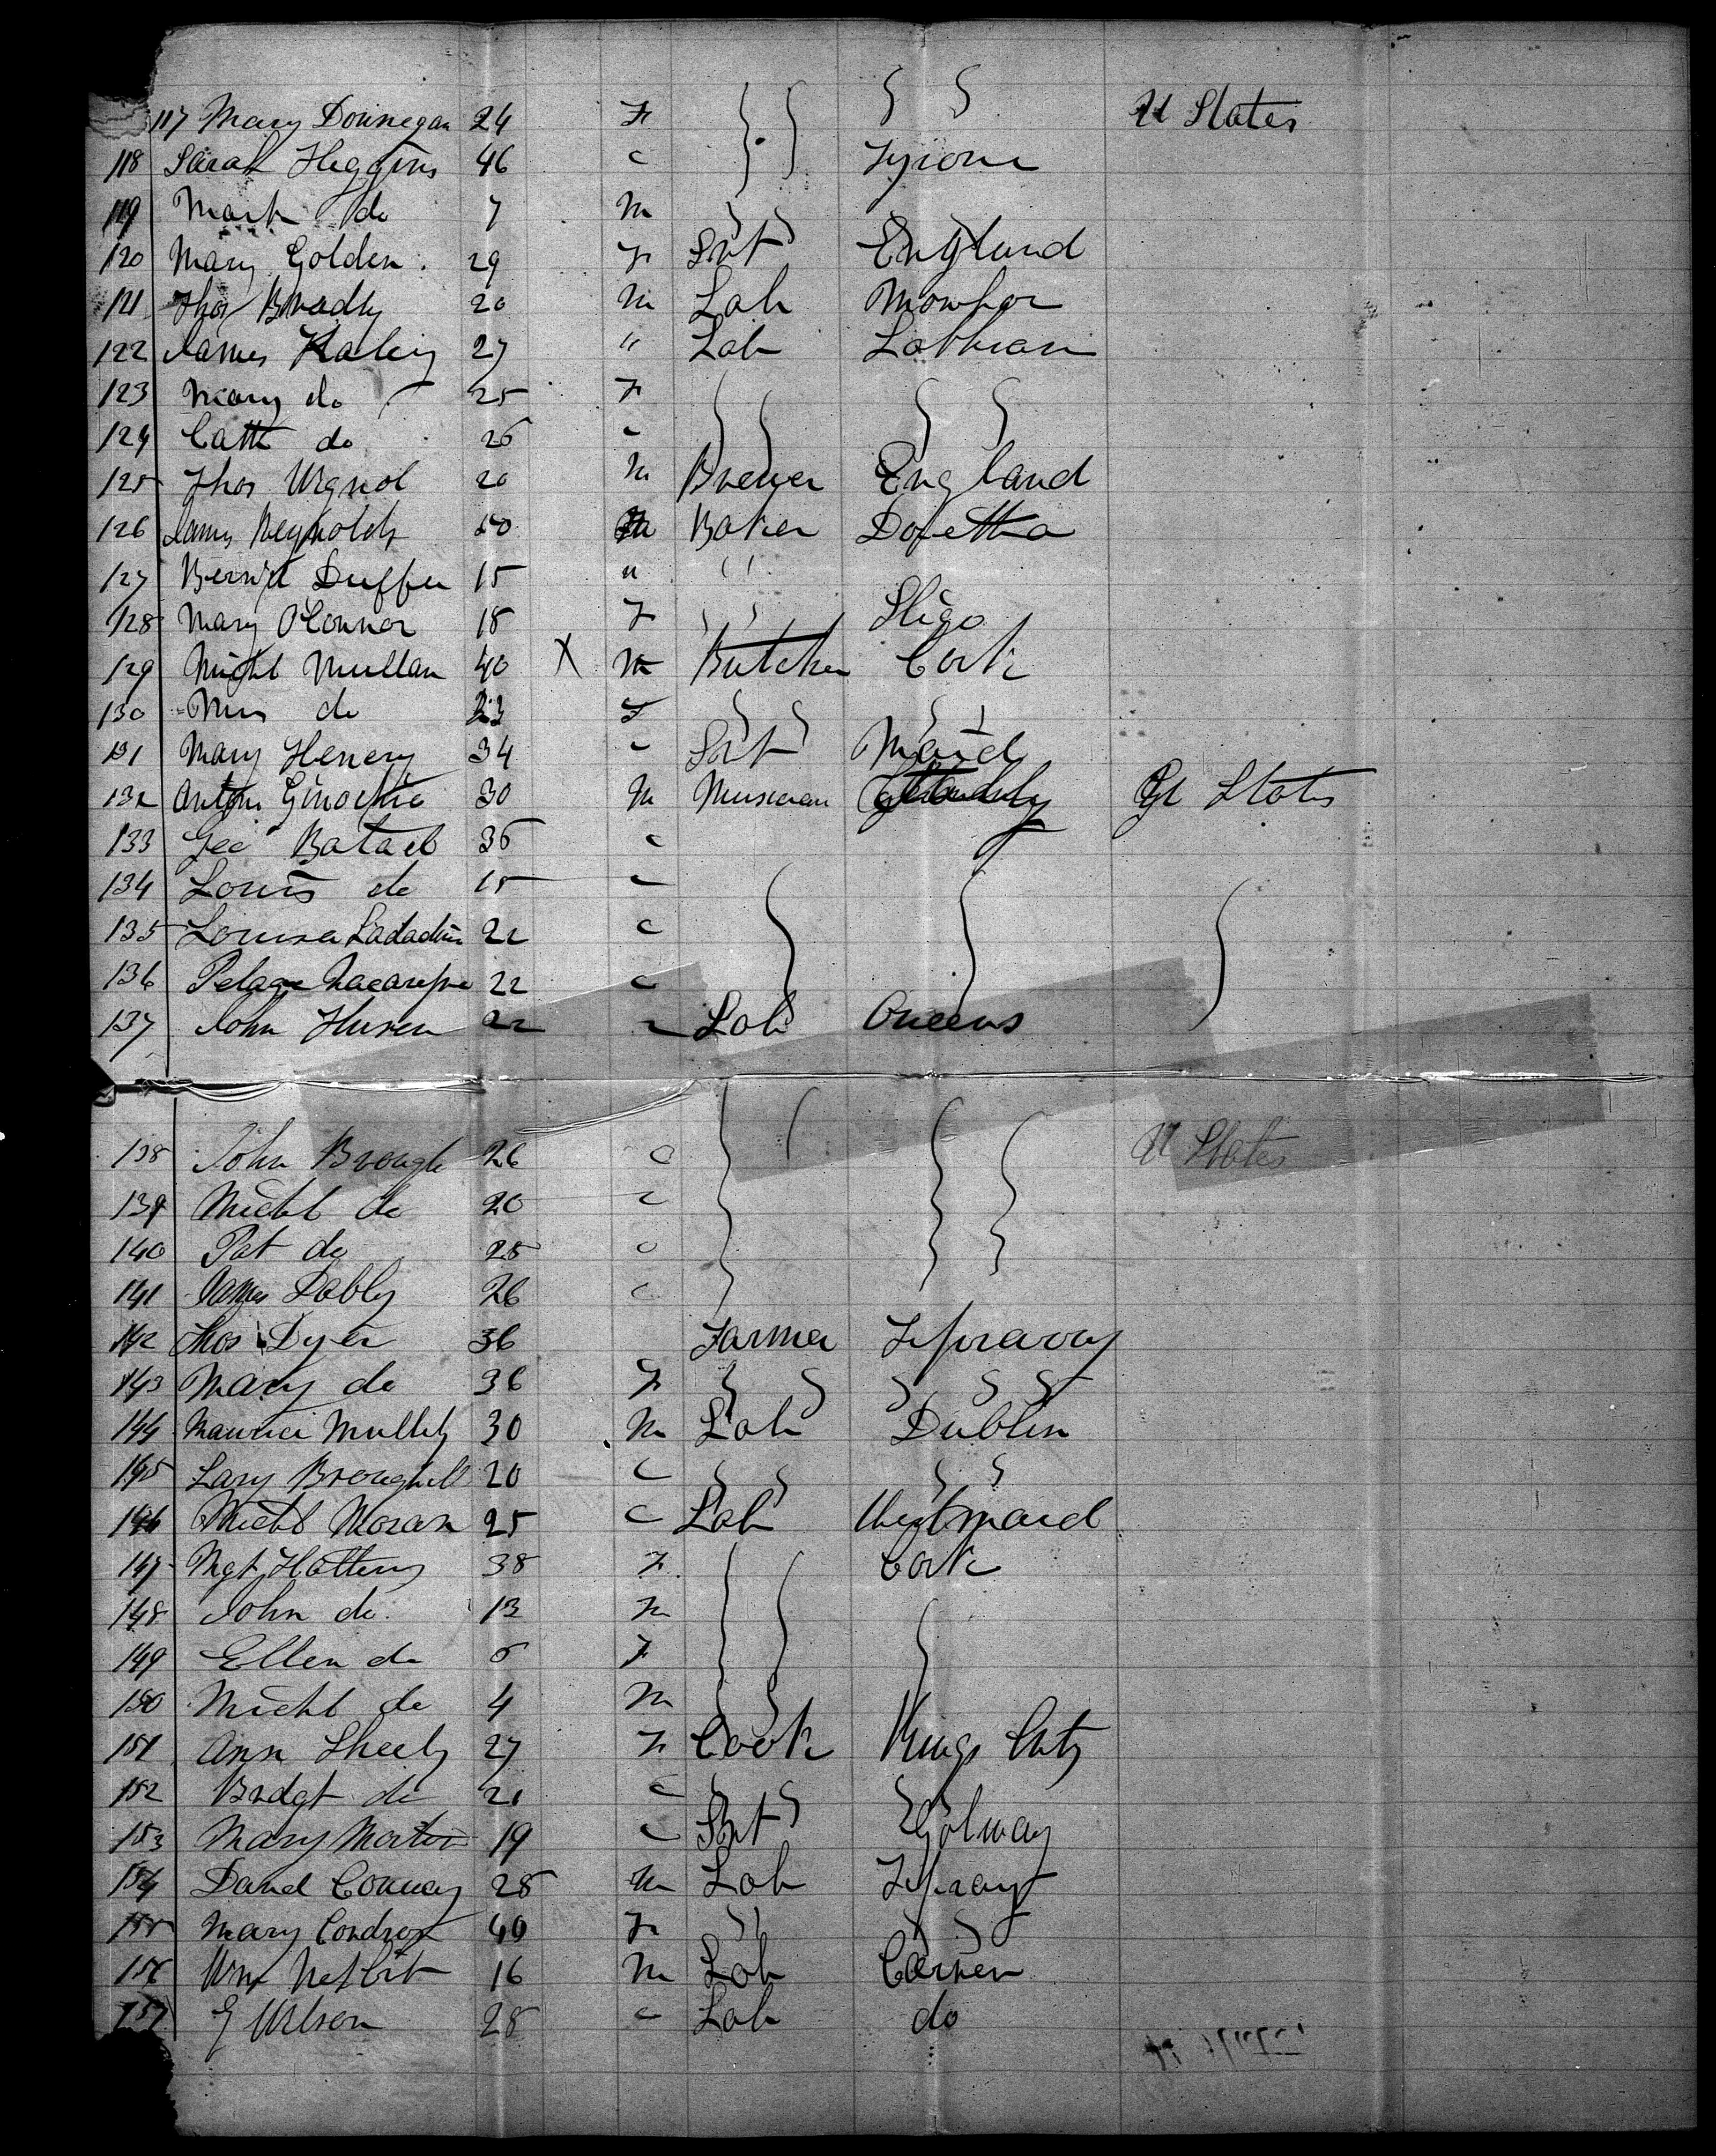 117 Mary Donnegan 24 F U States
118 Sarah Higgins 46 " Tyrone
119 Mark do 7 M
120 Mary Golden 29 F Svt England
121 Thos Bradly 20 M Lab
122 James 27 " Lab
123 Mary do 25 F
124 Cath do 26 "
125 Thos 20 M Brewer England
126 James Reynolds 50 M Baker
127 Duffy 15 " "
128 Mary O'Connor 18 F Sligo
129 Michl Mullan 40 X M Butcher Cork
130 Mrs do 23 F
131 Mary Henery 34 " Svt
132 Antoni Ginochio 30 M Musician States
133 Geo 35 "
134 Louis do 15 "
135 Louisa 22 "
136 22 "
137 John 22 " Lab Queens
138 John Brough 26 " U States
139 Michl do 20 "
140 Pat do 25 "
141 James 26 "
142 Thos Dyer 36 Farmer
143 Mary do 36 F
144 Maurice 30 M Lab Dublin
145 Lary Broughill 20 "
146 Michl Moran 25 " Lab
147 Mgt 38 F Cork
148 John do 13 M
149 Ellen do 6 F
150 Michl do 4 M
151 Ann Sheely 27 F Cook Kings Cnty
152 Bridgt do 21 "
153 Mary Martin 19 " Svt Galway
154 David Conway 28 M Lab
155 Mary 40 F
156 Wm Nesbit 16 M Lab
157 E Wilson 28 " Lab do